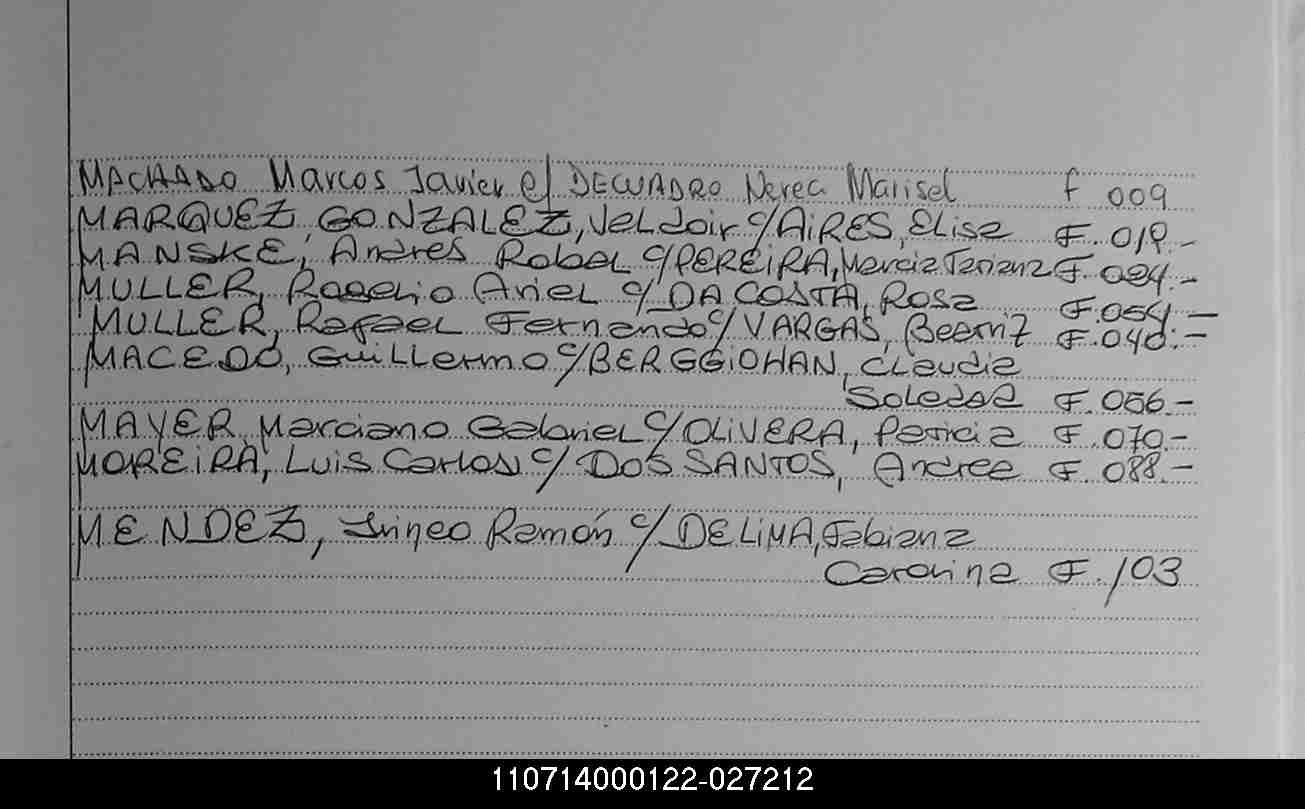 MACHADO Marcos Javier c/ DECUADRO Nerea Marisel f 009
MARQUEZ GONZALEZ, Veldoir c/ AIRES, Elisa F. 019.-
MANSKE, Andres Robel c/ PEREIRA, Marcia Tatiana F. 024.-
MULLER, Rogelio Ariel c/ DA COSTA, Rosa F. 054.-
MULLER, Rafael Fernando c/ VARGAS, Beatriz F. 040.-
MACEDO, Guillermo c/ BERGGIOHAN, Claudia
Soledad F. 066.-
MAYER, Marciano Gabriel c/ OLIVERA, Patricia F. 070.-
MOREIRA, Luis Carlos c/ DOS SANTOS, Andrea F. 088.-
MENDEZ, Irineo Ramón c/ DE LIMA, Fabiana
Carolina F. 103
110714000122-027212